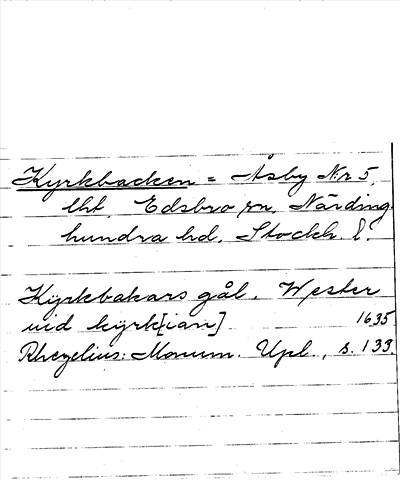 Kyrkbacken = Åsby Nr 5,
lht, Edsbro sn, Närding-
hundra hd, Stockh. l.
Kÿrkbakars gål. Wester
uid kÿrk[ian] 1635
Rhezelius: Monum. Upl., s. 133.